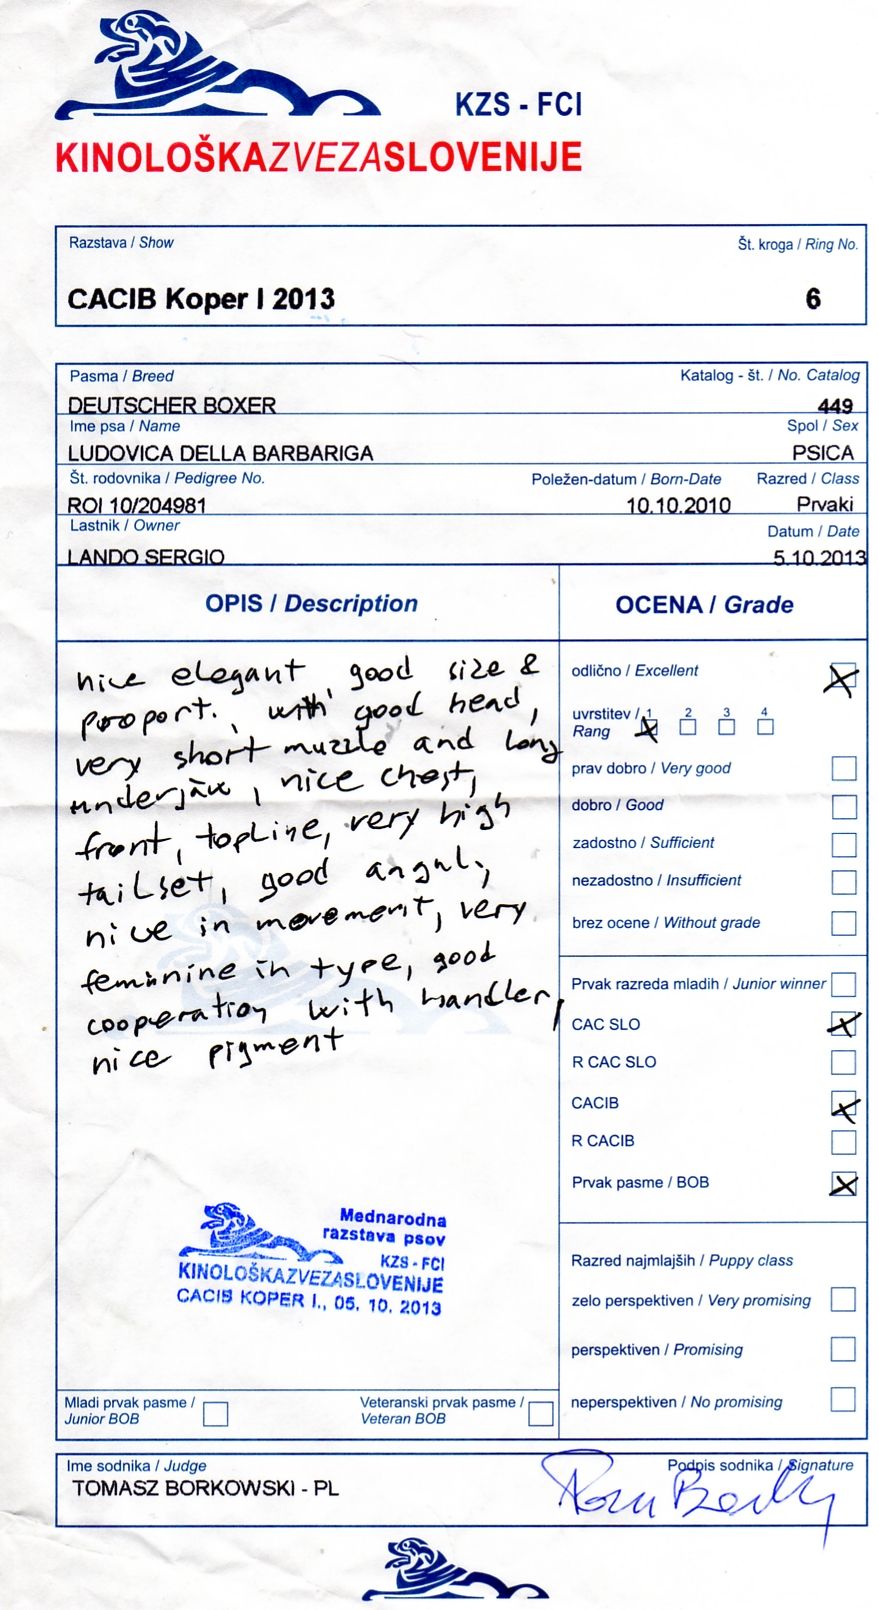 KZS - FCI
KINOLOŠKAZVEZASLOVENIJE
Razstava / Show Št. kroga / Ring No.
CACIB Koper I 2013 6
Pasma / Breed Katalog - št. / No. Catalog
DEUTSCHER BOXER 449
Ime psa / Name Spol / Sex
LUDOVICA DELLA BARBARIGA PSICA
Št. rodovnika / Pedigree No. Poležen-datum / Born-Date Razred / Class
ROI 10/204981 10.10.2010 Prvaki
Lastnik / Owner Datum / Date
LANDO SERGIO 5.10.2013
OPIS / Description
nice elegant, good size &
proport., with good head,
very short muzzle and long
underjaw, nice chest,
front, topline, very high
tailset, good angul.,
nice in movement, very
feminine in type, good
cooperation with handler,
nice pigment
Mednarodna
razstava psov
KZS - FCI
KINOLOŠKAZVEZASLOVENIJE
CACIB KOPER I., 05. 10. 2013
Mladi prvak pasme /
Junior BOB
Veteranski prvak pasme /
Veteran BOB
OCENA / Grade
odlično / Excellent
uvrstitev / 1 2 3 4
Rang
prav dobro / Very good
dobro / Good
zadostno / Sufficient
nezadostno / Insufficient
brez ocene / Without grade
Prvak razreda mladih / Junior winner
CAC SLO
R CAC SLO
CACIB
R CACIB
Prvak pasme / BOB
Razred najmlajših / Puppy class
zelo perspektiven / Very promising
perspektiven / Promising
neperspektiven / No promising
Ime sodnika / Judge Podpis sodnika / Signature
TOMASZ BORKOWSKI - PL